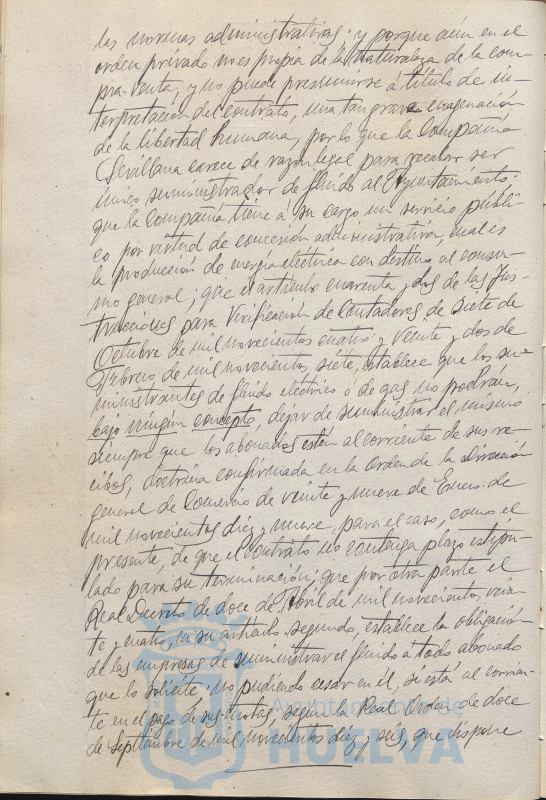 las normas administrativas; y porque aún en el
orden privado no es propia de la naturaleza de la com-
pra-venta, y no puede presumirse á título de in-
terpretacion del contrato, una tan grave enagenación
de la libertad humana, por lo que la Compañía
Sevillana carece de razon legal para recabar ser
único suministrador de fluido al Ayuntamiento:
que la Compañía tiene á su cargo un servicio públi-
co por virtud de concesión administrativa, cual es
la producción de energía electrica con destino al consu-
mo general; que el artículo cuarenta y dos de las Ins-
trucciones para Verificación de Contadores de siete de
Octubre de mil novecientos cuatro y Veinte y dos de
Febrero de mil novecientos siete, establece que los su-
ministrantes de fluido eléctrico ó de gas no podrán,
bajo ningún concepto, dejar de suministrar el mismo
siempre que los abonados estén al corriente de sus re-
cibos, doctrina confirmada en la Orden de la Dirección
general de Comercio de veinte y nueve de Enero de
mil novecientos diez y nueve, para el caso, como el
presente, de que el contrato no contenga plazo estipu-
lado para su terminación; que por otra parte el
Real Decreto de doce de Abril de mil novecientos vein-
te y cuatro, en su artículo segundo, establece la obligación
de las empresas de suministrar el fluido a todo abonado
que lo solicite, no pudiendo cesar en él, si está al corrien-
te en el pago de sus cuotas, segun la Real Orden de doce
de Septiembre de mil novecientos diez y seis, que dispone
Ayuntamiento de
HUELVA